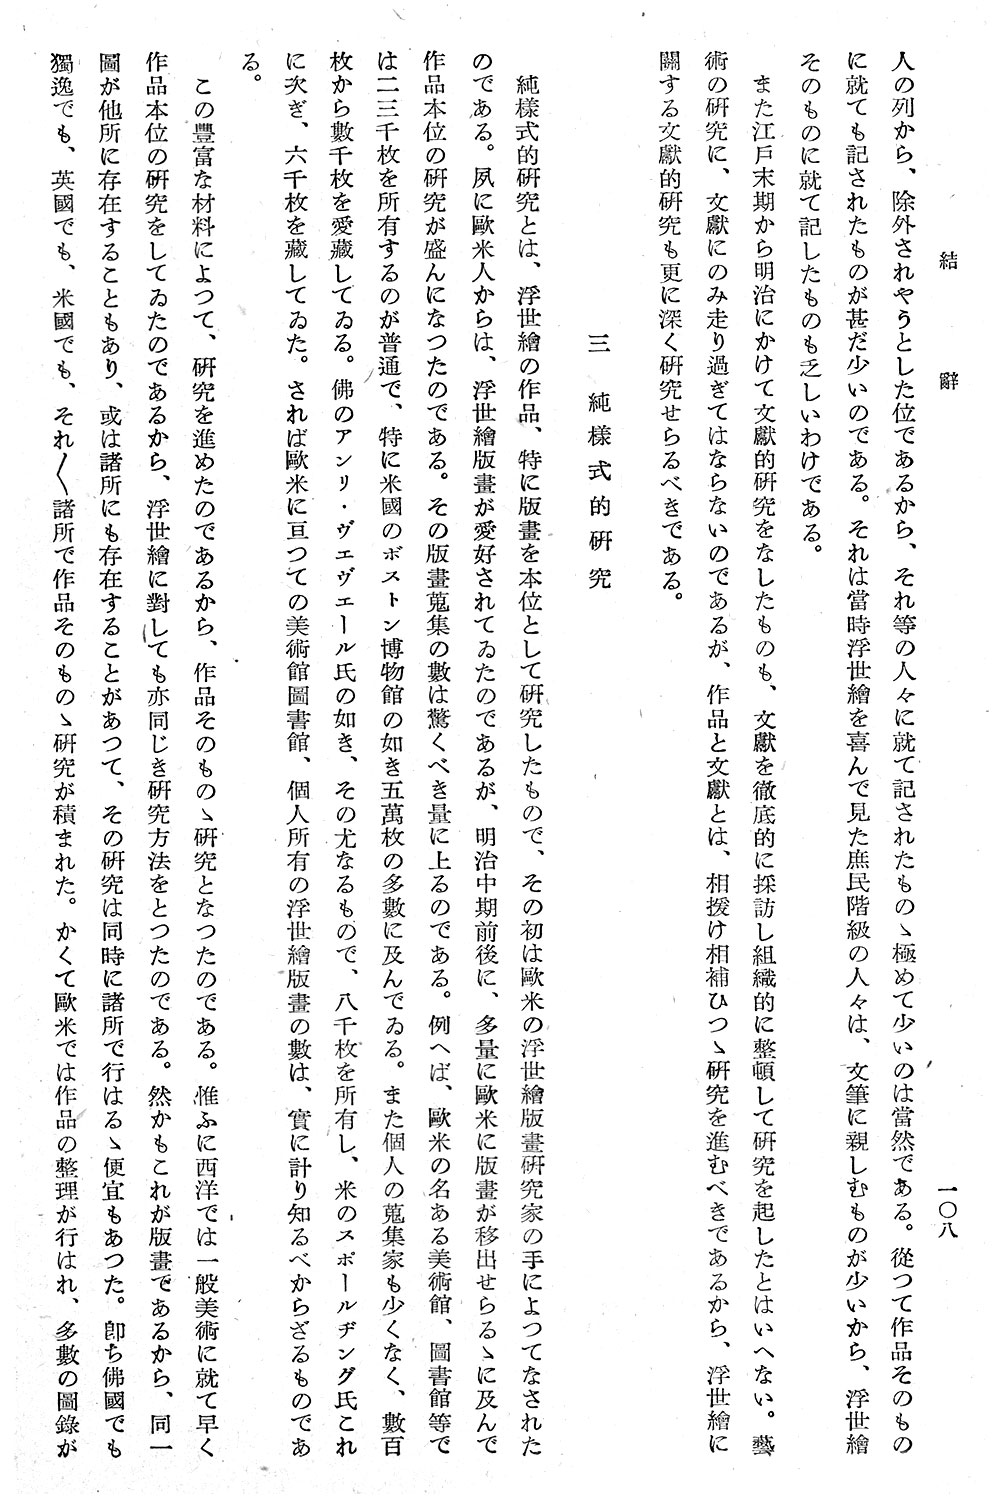 結辭
一〇八
人の列から、除外されやうとした位であるから、それ等の人々に就て記されたものゝ極めて少いのは當然である。從つて作品そのもの
に就ても記されたものが甚だ少いのである。それは當時浮世繪を喜んで見た庶民階級の人々は、文筆に親しむものが少いから、浮世繪
そのものに就て記したものも乏しいわけである。
また江戶末期から明治にかけて文獻的硏究をなしたものも、文獻を徹底的に採訪し組織的に整頓して硏究を起したとはいへない。藝
術の硏究に、文獻にのみ走り過ぎてはならないのであるが、作品と文獻とは、相援け相補ひつゝ硏究を進むべきであるから、浮世繪に
關する文獻的硏究も更に深く硏究せらるべきである。
三　純樣式的硏究
純樣式的硏究とは、浮世繪の作品、特に版畫を本位として硏究したもので、その初は歐米の浮世繪版畫硏究家の手によつてなされた
のである。夙に歐米人からは、浮世繪版畫が愛好されてゐたのであるが、明治中期前後に、多量に歐米に版畫が移出せらるゝに及んで
作品本位の硏究が盛んになつたのである。その版畫蒐集の數は驚くべき量に上るのである。例へば、歐米の名ある美術館、圖書館等で
は二三千枚を所有するのが普通で、特に米國のボストン博物館の如き五萬枚の多數に及んでゐる。また個人の蒐集家も少くなく、數百
枚から數千枚を愛藏してゐる。佛のアンリ・ヴエヴエール氏の如き、その尤なるもので、八千枚を所有し、米のスポールヂング氏これ
に次ぎ、六千枚を藏してゐた。されば歐米に亘つての美術館圖書館、個人所有の浮世繪版畫の數は、實に計り知るべからざるものであ
る。
この豐富な材料によつて、硏究を進めたのであるから、作品そのものゝ硏究となつたのである。惟ふに西洋では一般美術に就て早く
作品本位の硏究をしてゐたのであるから、浮世繪に對しても亦同じき硏究方法をとつたのである。然かもこれが版畫であるから、同一
圖が他所に存在することもあり、或は諸所にも存在することがあつて、その硏究は同時に諸所で行はるゝ便宜もあつた。卽ち佛國でも
獨逸でも、英國でも、米國でも、それ〱諸所で作品そのものゝ硏究が積まれた。かくて歐米では作品の整理が行はれ、多數の圖錄が